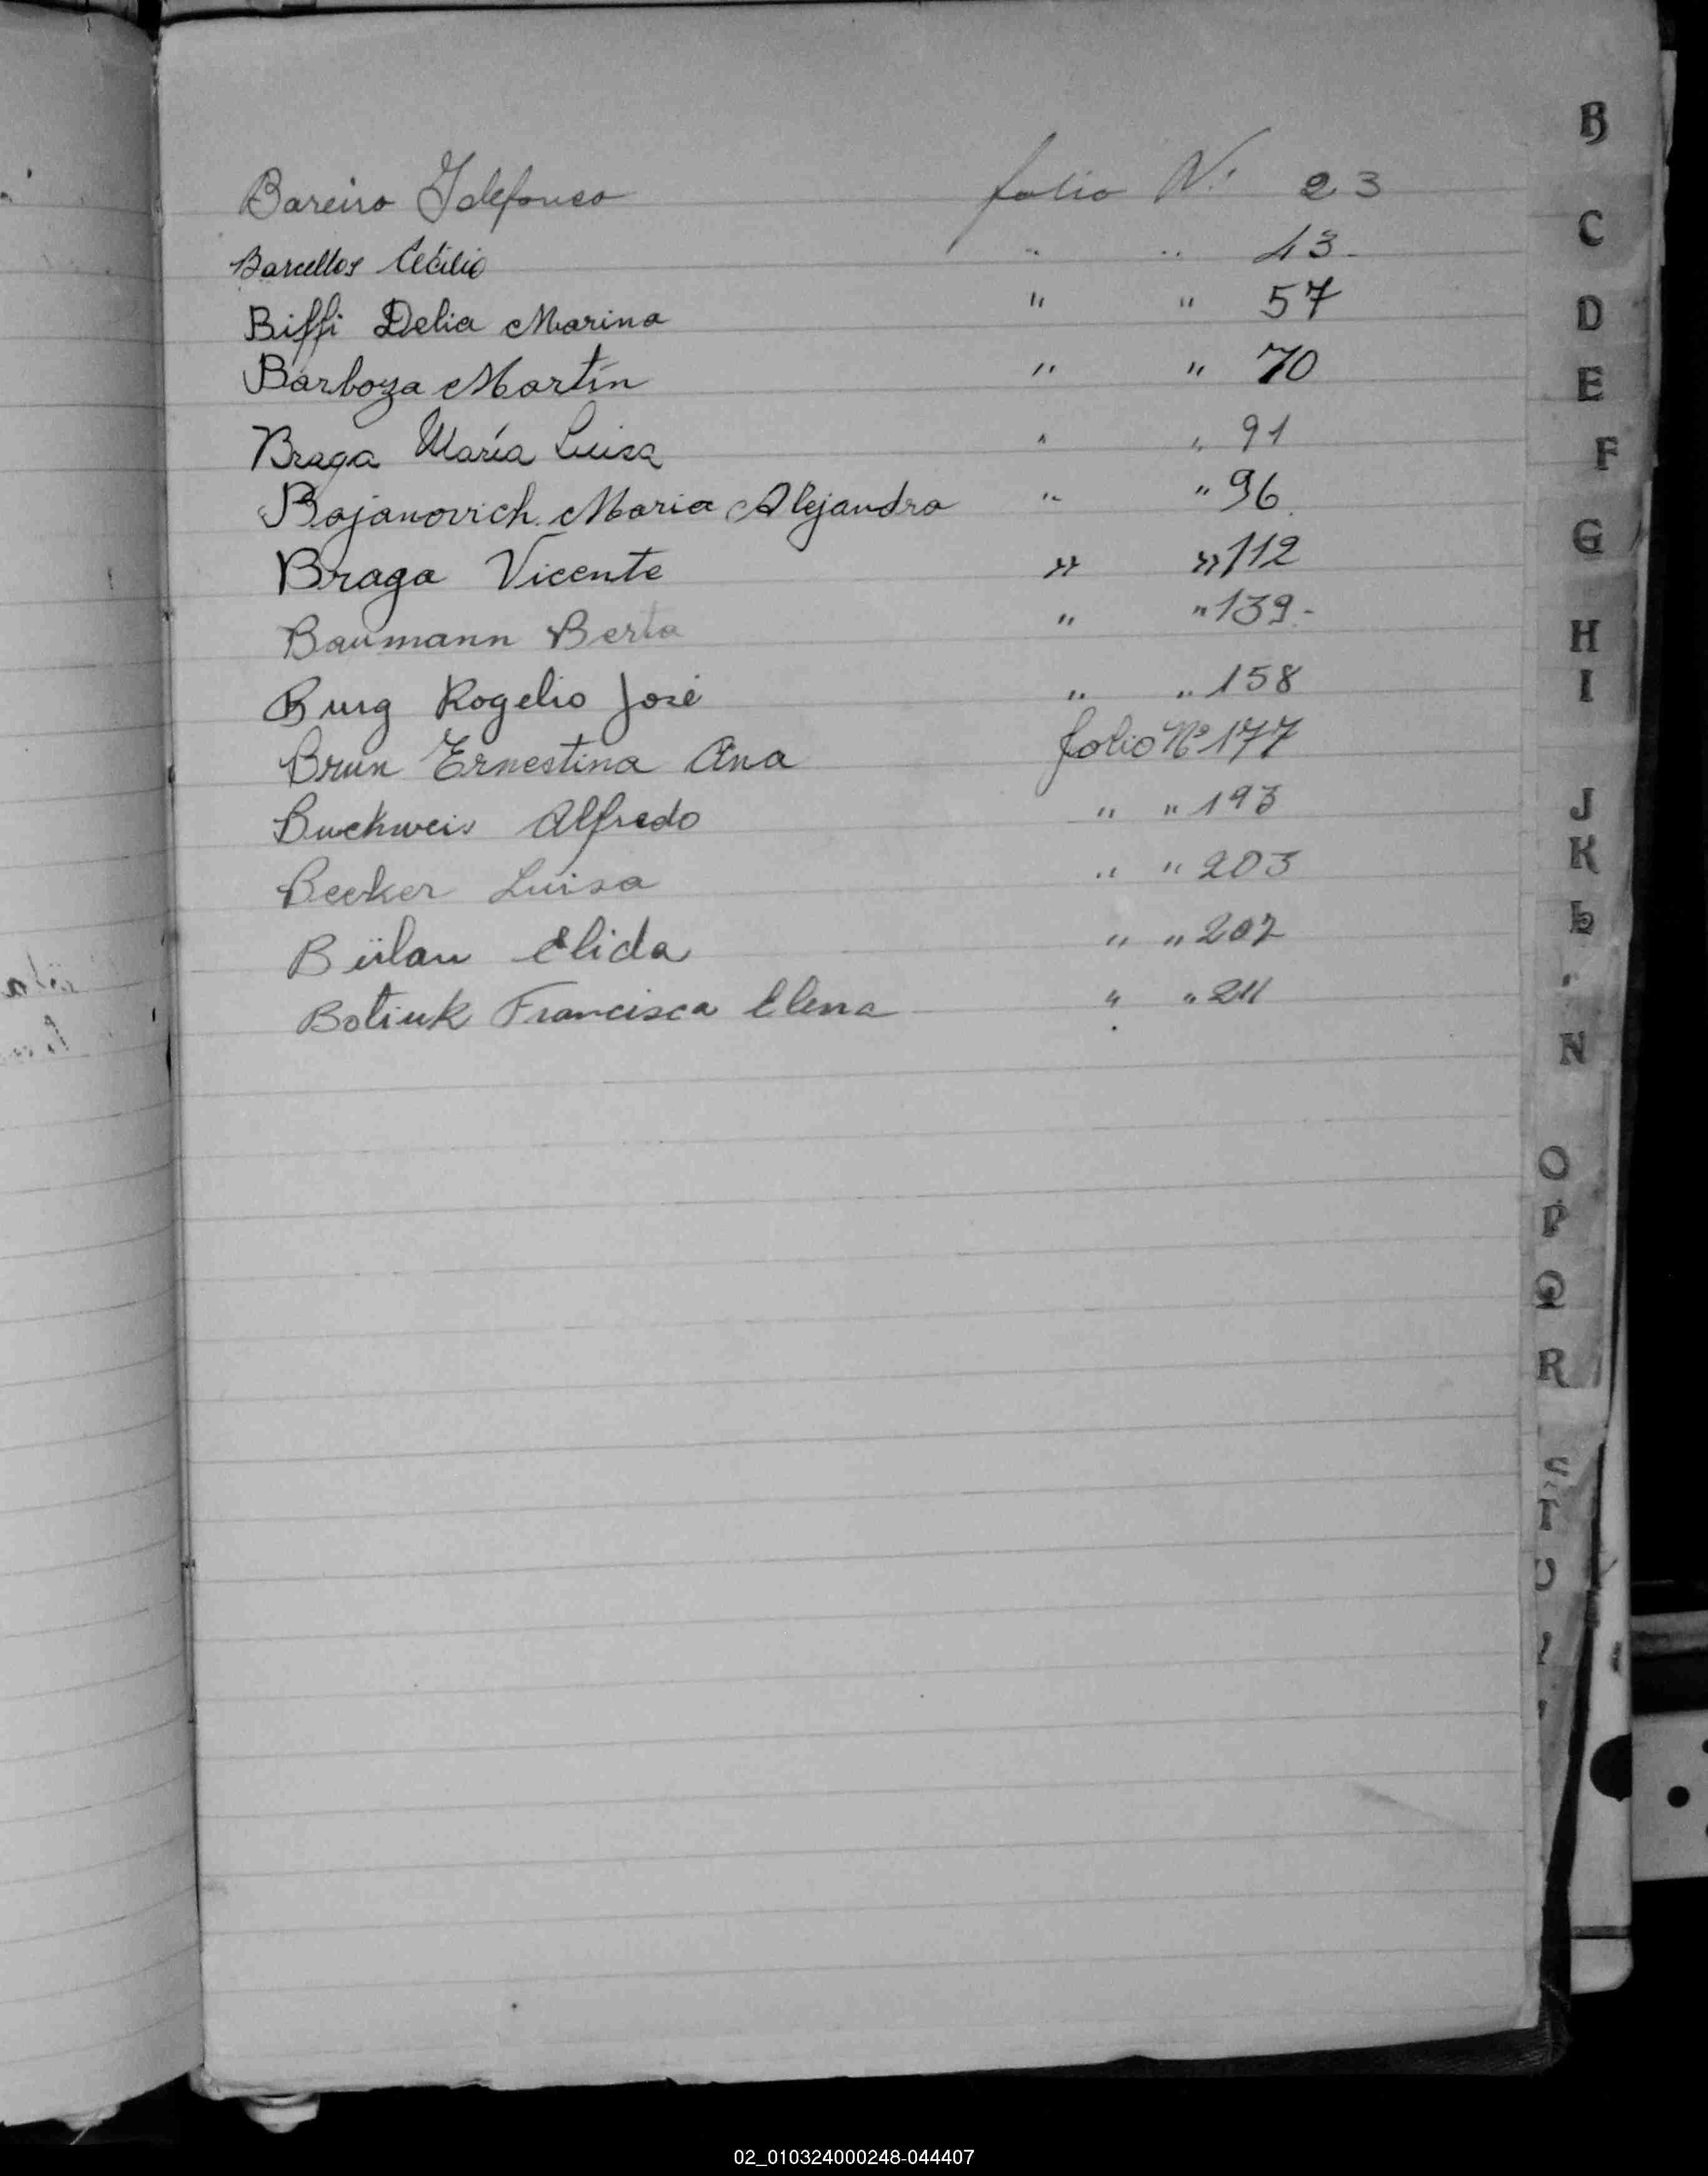 Bareiro Ildefonso folio N.º 23
Barcellos Cecilio " " 43-
Biffi Delia Marina " " 57
Barboza Martín " " 70
Braga María Luisa " " 91
Bojanovich Maria Alejandra " " 96
Braga Vicente " " 112
Baumann Berta " " 139-
Burg Rogelio José " " 158
Brun Ernestina Ana folio Nº 177
Buchweis Alfredo " " 193
Becker Luisa " " 203
Bülau Elida " " 207
Botiuk Francisca Elena " " 211
B
C
D
E
F
G
H
I
J
K
L
N
O
P
Q
R
S
T
U
02_010324000248-044407